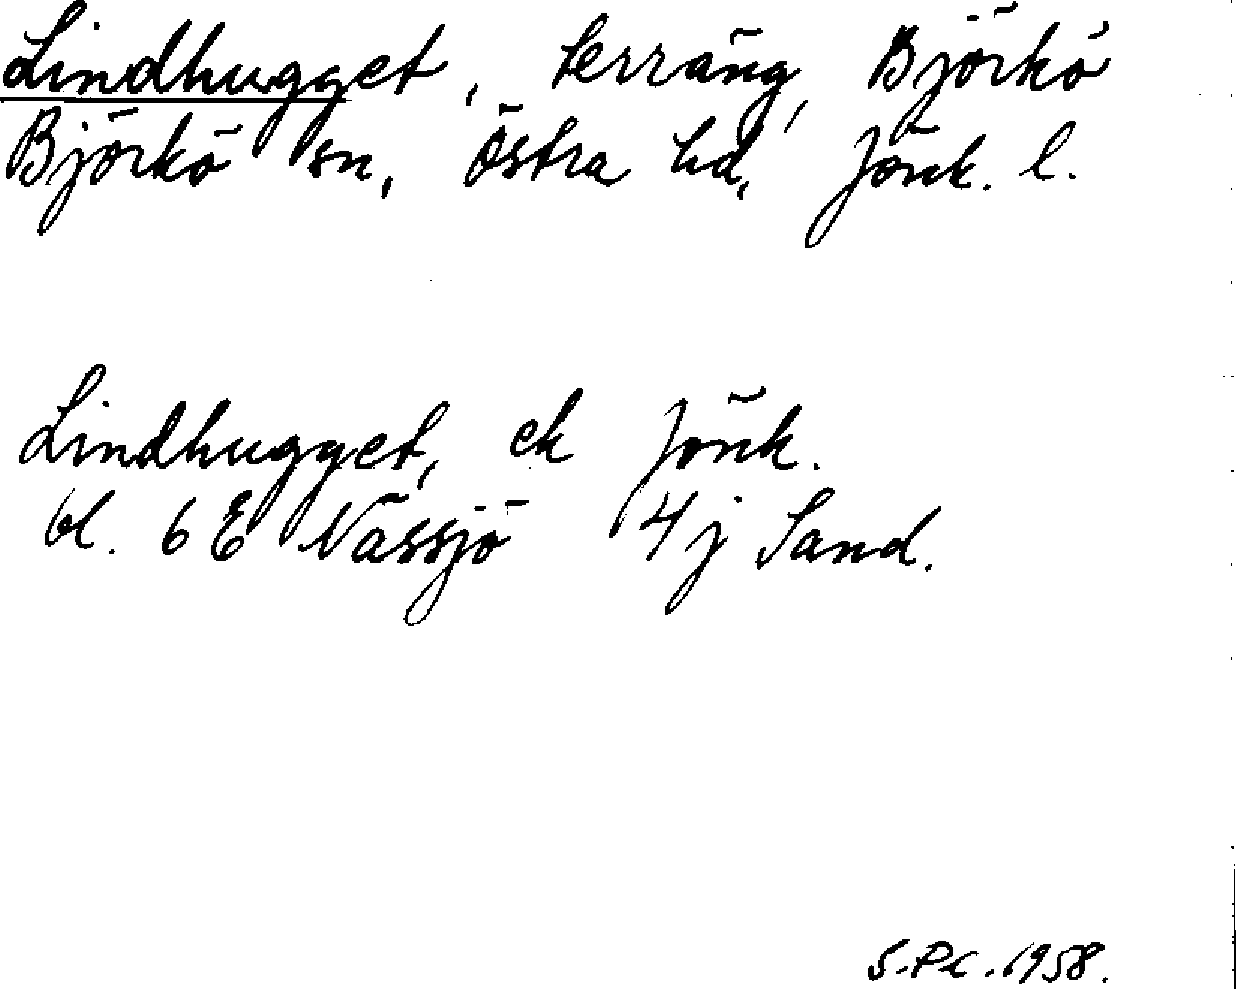 Lindhugget, terräng, Björkö
Björkö sn, Östra hd, Jönk. l.
Lindhugget, ek Jönk.
bl. 6 E Nässjö 4j Sand.
S.P.C. 1958.